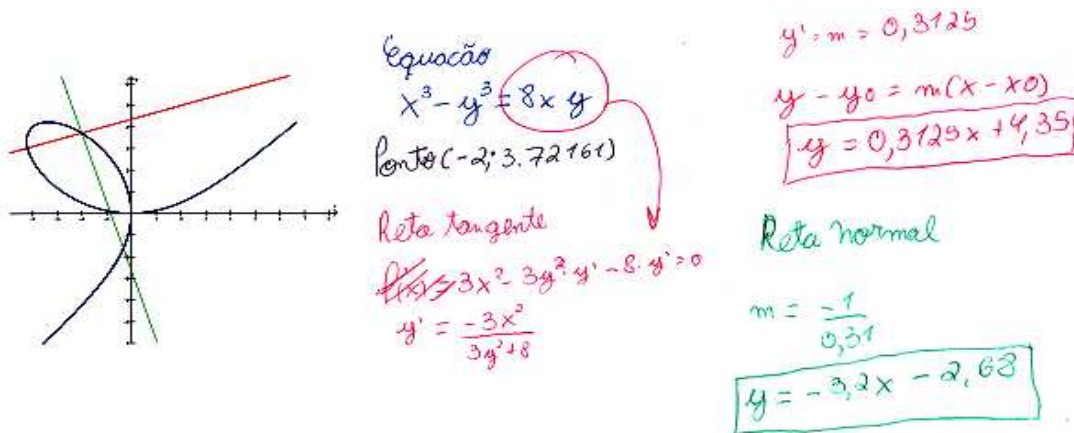 Equacão
x³ - y³ = 8x y
Ponto (-2; 3.72161)
Reta tangente
f'(x) = 3x² - 3y² · y' - 8 · y' = 0
y' = -3x² / 3y² + 8
y' = m = 0,3125
y - y0 = m(x - x0)
y = 0,3125x + 4,35
Reta normal
m = -1 / 0,31
y = -3,2x - 2,68